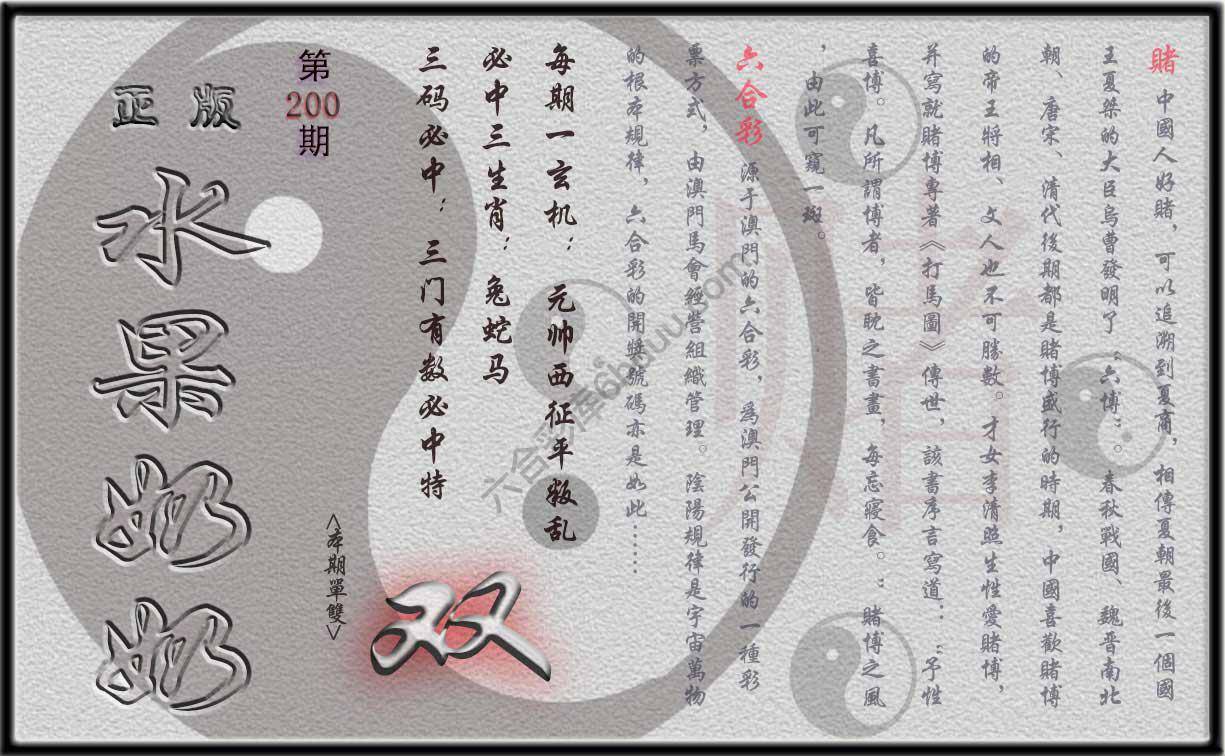 賭 中國人好賭，可以追溯到夏商，相傳夏朝最後一個國
王夏桀的大臣烏曹發明了“六博”。春秋戰國、魏晋南北
朝、唐宋、清代後期都是賭博盛行的時期，中國喜歡賭博
的帝王將相、文人也不可勝數。才女李清照生性愛賭博，
并寫就賭博專著《打馬圖》傳世，該書序言寫道：“予性
喜博。凡所謂博者，皆耽之晝畫，每忘寢食。”賭博之風
，由此可窺一斑。
六合彩 源于澳門的六合彩，爲澳門公開發行的一種彩
票方式，由澳門馬會經營組織管理。陰陽規律是宇宙萬物
的根本規律，六合彩的開獎號碼亦是如此……
每期一玄机：元帅西征平叛乱
必中三生肖：兔蛇马
三码必中：三门有数必中特
<本期單雙>
双
第
200
期
正版
水果奶奶
六合彩库6htuku.com
賭